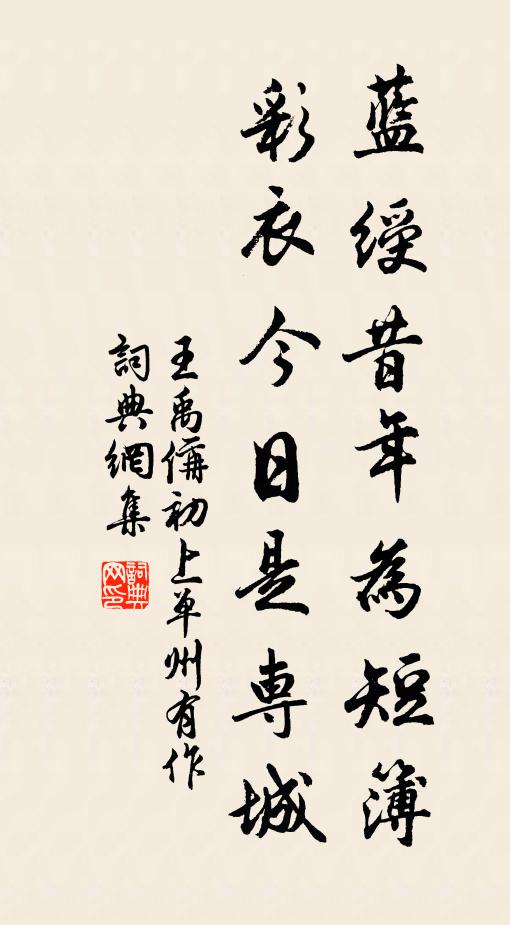 藍綬昔年為短簿
彩衣今日是專城
王禹偁初上单州有作
詞典網集
詞典网印